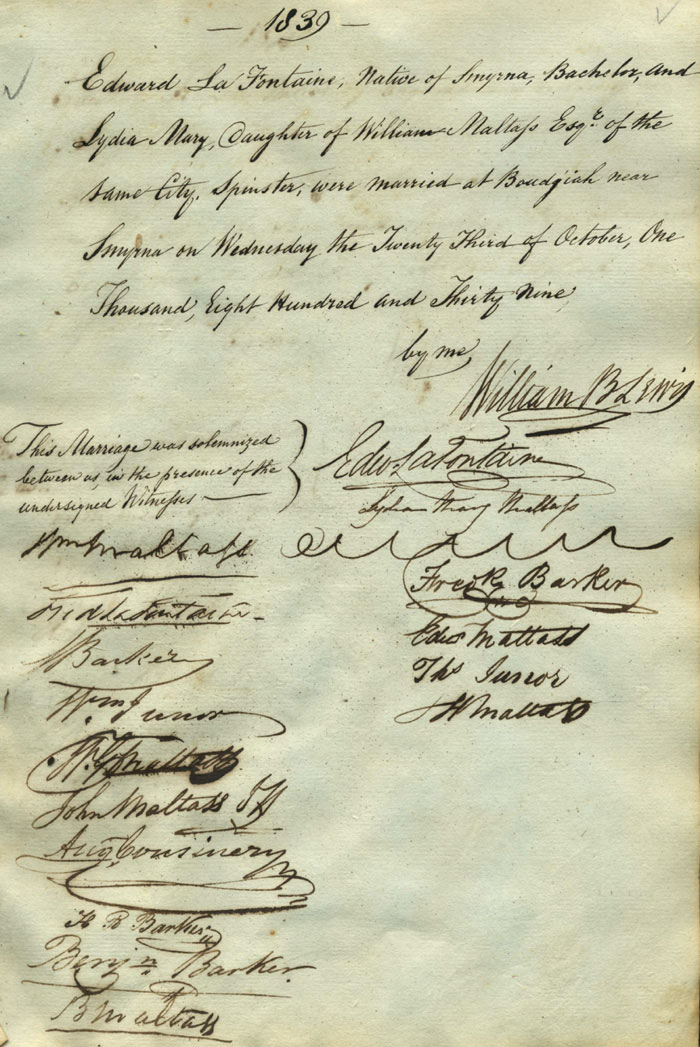 — 1839 —
Edward La Fontaine, Native of Smyrna, Bachelor, and
Lydia Mary, Daughter of William Maltass Esqr. of the
same City, Spinster, were married at Boudjiah near
Smyrna on Wednesday the Twenty Third of October, One
Thousand, Eight Hundred and Thirty Nine,
by me,
William B Lewis
This Marriage was solemnized
between us in the presence of the
undersigned Witnesses —
Edwd LaFontaine
Lydia Mary Maltass
Wm Maltass
Fredk Barker
LaFontaine
Edwd Maltass
Barker
Ths Junor
Wm Junor
Maltass
Maltass
John Maltass
Aug. Cousinery
H B Barker
Benjn Barker
B Maltass